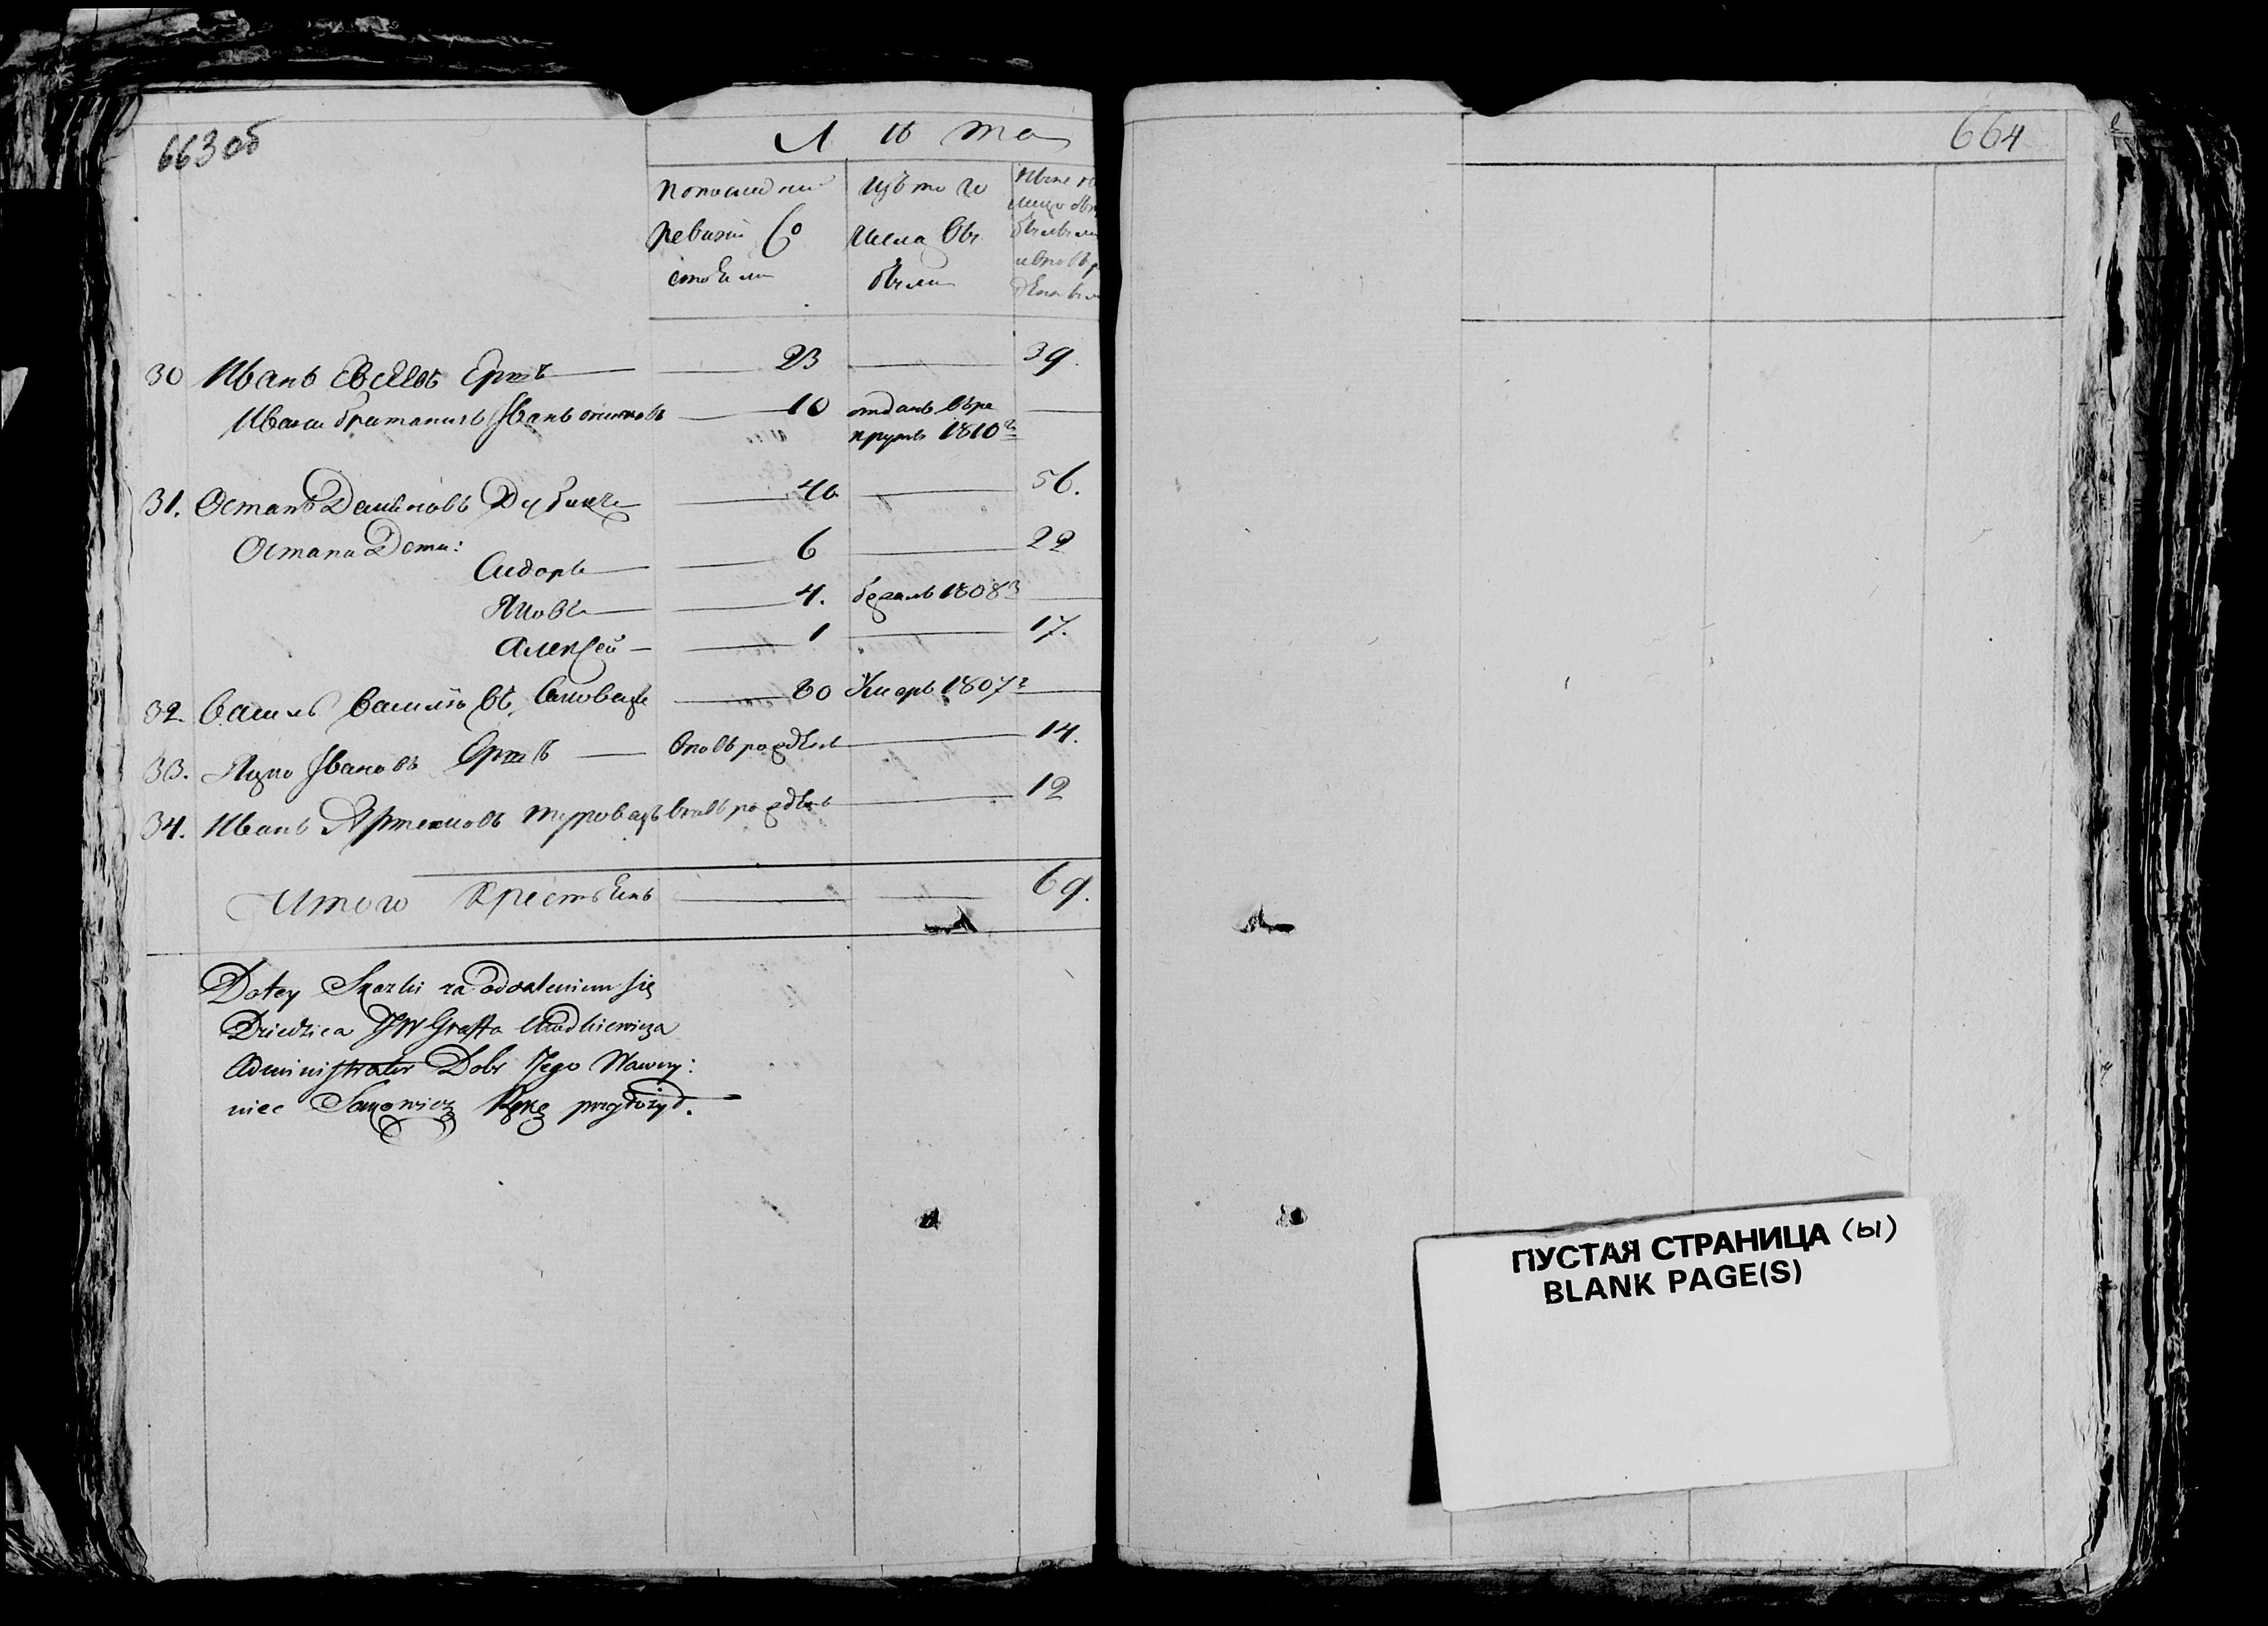 663 об
Лѣта
По последней ревизіи Состояли
Изъ того числа выбыли
Ныне
30 Иванъ Евсеевъ Ершъ 23 39.
Ивана братаничъ Иванъ 10 отданъ въ рекруты 1810 г
31. Остапъ Демяновъ 40 56.
Остапа Дети:
Сидоръ 6 22
Яковъ 4. бежалъ 1808 г
Алексей 1 17.
32. Василь Васильевъ 30 Умеръ 1807 г
33. Яцко Ивановъ Ершъ вновь рожденъ 14.
34. Иванъ Артемновъ Туровецъ вновь рожденъ 12
Итого Крестьянъ 69.
Do tey Skazki za oddaleniem się
Dziedzica JW Graffa Chodkiewicza
Administrator Dobr Jego Wawrzy:
niec Sanowicz Rękę przyłożył.
664
ПУСТАЯ СТРАНИЦА (Ы)
BLANK PAGE(S)